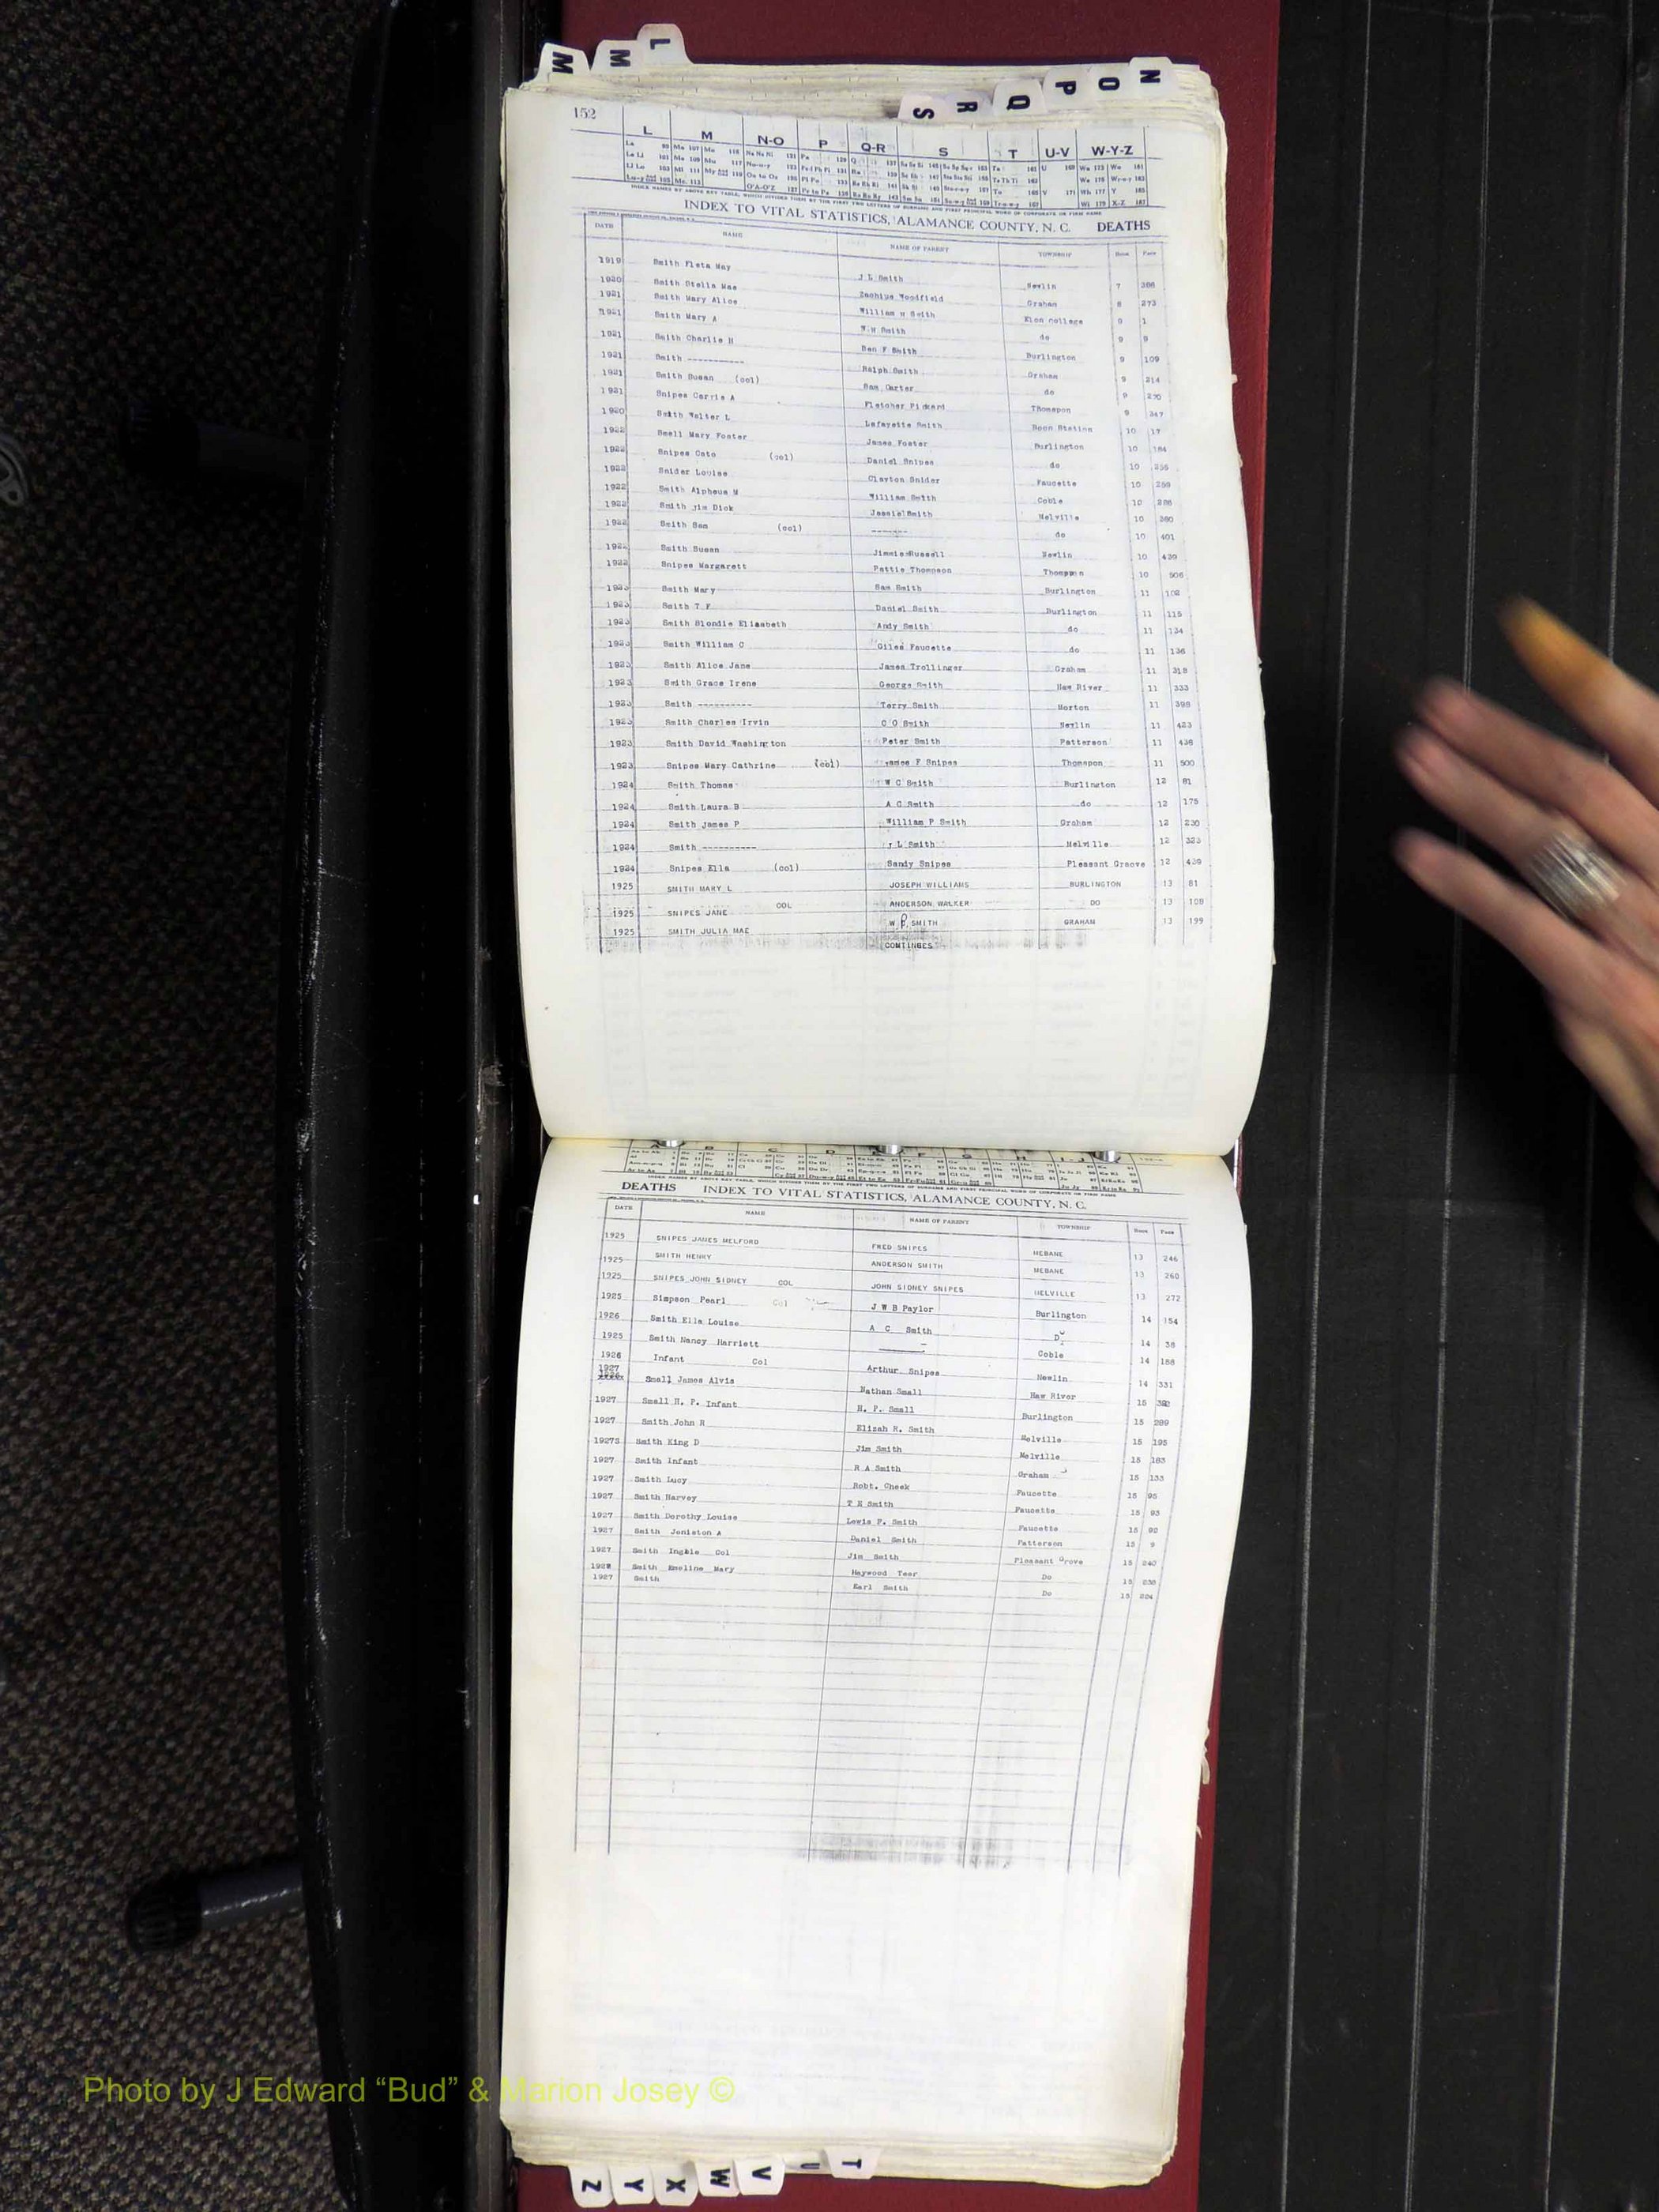 L
M
M
N
O
P
Q
R
S
152
L M N-O P Q-R S T U-V W-Y-Z
INDEX NAMES BY ABOVE KEY TABLE, WHICH DIVIDES THEM BY THE FIRST TWO LETTERS OF SURNAME AND FIRST PRINCIPAL WORD OF CORPORATE OR FIRM NAME
INDEX TO VITAL STATISTICS, ALAMANCE COUNTY, N. C. DEATHS
DATE NAME NAME OF PARENT TOWNSHIP Book Page
1919 Smith Fleta May J L Smith Newlin 7 388
1920 Smith Stella Mae Zachius Woodfield Graham 8 273
1921 Smith Mary Alice William H Smith Elon College 9 1
1921 Smith Mary A W H Smith do 9 9
1921 Smith Charlie H Ben F Smith Burlington 9 109
1921 Smith ----------- Ralph Smith Graham 9 214
1921 Smith Susan (col) Sam Carter do 9 270
1921 Snipes Carrie A Fletcher Pickard Thompson 9 347
1920 Smith Walter L Lafayette Smith Boon Station 10 17
1922 Small Mary Foster James Foster Burlington 10 184
1922 Snipes Cato (col) Daniel Snipes do 10 255
1922 Snider Louise Clayton Snider Faucette 10 259
1922 Smith Alpheus M William Smith Coble 10 286
1922 Smith Jim Dick Jessie Smith Melville 10 380
1922 Smith Sam (col) ------- do 10 401
1922 Smith Susan Jimmie Russell Newlin 10 430
1922 Snipes Margarett Pattie Thompson Thompson 10 506
1923 Smith Mary Sam Smith Burlington 11 102
1923 Smith T F Daniel Smith Burlington 11 115
1923 Smith Blondie Elizabeth Andy Smith do 11 134
1923 Smith William C Giles Faucette do 11 136
1923 Smith Alice Jane James Trollinger Graham 11 318
1923 Smith Grace Irene George Smith Haw River 11 333
1923 Smith ---------- Terry Smith Morton 11 398
1923 Smith Charles Irvin C O Smith Newlin 11 423
1923 Smith David Washington Peter Smith Patterson 11 436
1923 Snipes Mary Cathrine (col) James F Snipes Thompson 11 500
1924 Smith Thomas W C Smith Burlington 12 81
1924 Smith Laura B A C Smith do 12 175
1924 Smith James P William P Smith Graham 12 230
1924 Smith ---------- J L Smith Melville 12 323
1924 Snipes Ella (col) Sandy Snipes Pleasant Groove 12 439
1925 SMITH MARY L JOSEPH WILLIAMS BURLINGTON 13 81
1925 SNIPES JANE COL ANDERSON WALKER DO 13 108
1925 SMITH JULIA MAE W P. SMITH GRAHAM 13 199
CONTINBES
DEATHS INDEX TO VITAL STATISTICS, ALAMANCE COUNTY, N. C.
DATE NAME NAME OF PARENT TOWNSHIP Book Page
1925 SNIPES JAMES MELFORD FRED SNIPES MEBANE 13 246
1925 SMITH HENRY ANDERSON SMITH MEBANE 13 260
1925 SNIPES JOHN SIDNEY COL JOHN SIDNEY SNIPES MELVILLE 13 272
1925 Simpson Pearl Col J W B Paylor Burlington 14 154
1926 Smith Ella Louise A C Smith Do 14 38
1925 Smith Nancy Harriett Coble 14 188
1926 Infant Col Arthur Snipes Newlin 14 331
1927 Small James Alvis Nathan Small Haw River 15
1927 Small H. P. Infant H. P. Small Burlington 15 289
1927 Smith John R Elizah R. Smith Melville 15 195
1927S Smith King D Jim Smith Melville 15 183
1927 Smith Infant R A Smith Graham 15 133
1927 Smith Lucy Robt. Cheek Faucette 15 95
1927 Smith Harvey T E Smith Faucette 15 93
1927 Smith Dorothy Louise Lewis F. Smith Faucette 15 92
1927 Smith Joniston A Daniel Smith Patterson 15 9
1927 Smith Ingble Col Jim Smith Pleasant Grove 15 240
1928 Smith Emeline Mary Haywood Teer Do 15 238
1927 Smith Earl Smith Do 15 224
Photo by J Edward “Bud” & Marion Josey ©
Z
Y
X
W
V
U
T